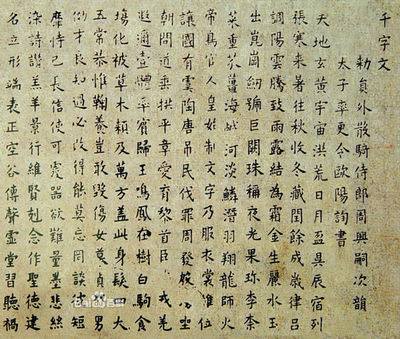 千字文
勅員外散騎侍郎周興嗣次韻
太子率更令歐陽詢書
天地玄黃宇宙洪荒日月盈昃辰宿列
張寒來暑往秋收冬藏閏餘成歲律呂
調陽雲騰致雨露結為霜金生麗水玉
出崑崗劒號巨闕珠稱夜光果珎李柰
菜重芥薑海醎河淡鱗潛羽翔龍師火
帝鳥官人皇始制文字乃服衣裳推位
讓國有虞陶唐吊民伐罪周發殷坐
朝問道垂拱平章愛育黎首臣戎羌
遐邇壹體率賓歸王鳴鳳在樹白駒食
場化被草木賴及萬方蓋此身髮四大
五常恭惟鞠養豈敢毀傷女慕貞男
效才良知過必改得能莫忘罔談彼短
靡恃己長信使可覆器欲難量墨悲絲
染詩讚羔羊景行維賢剋念作聖德建
名立形端表正空谷傳聲虛堂習聽禍